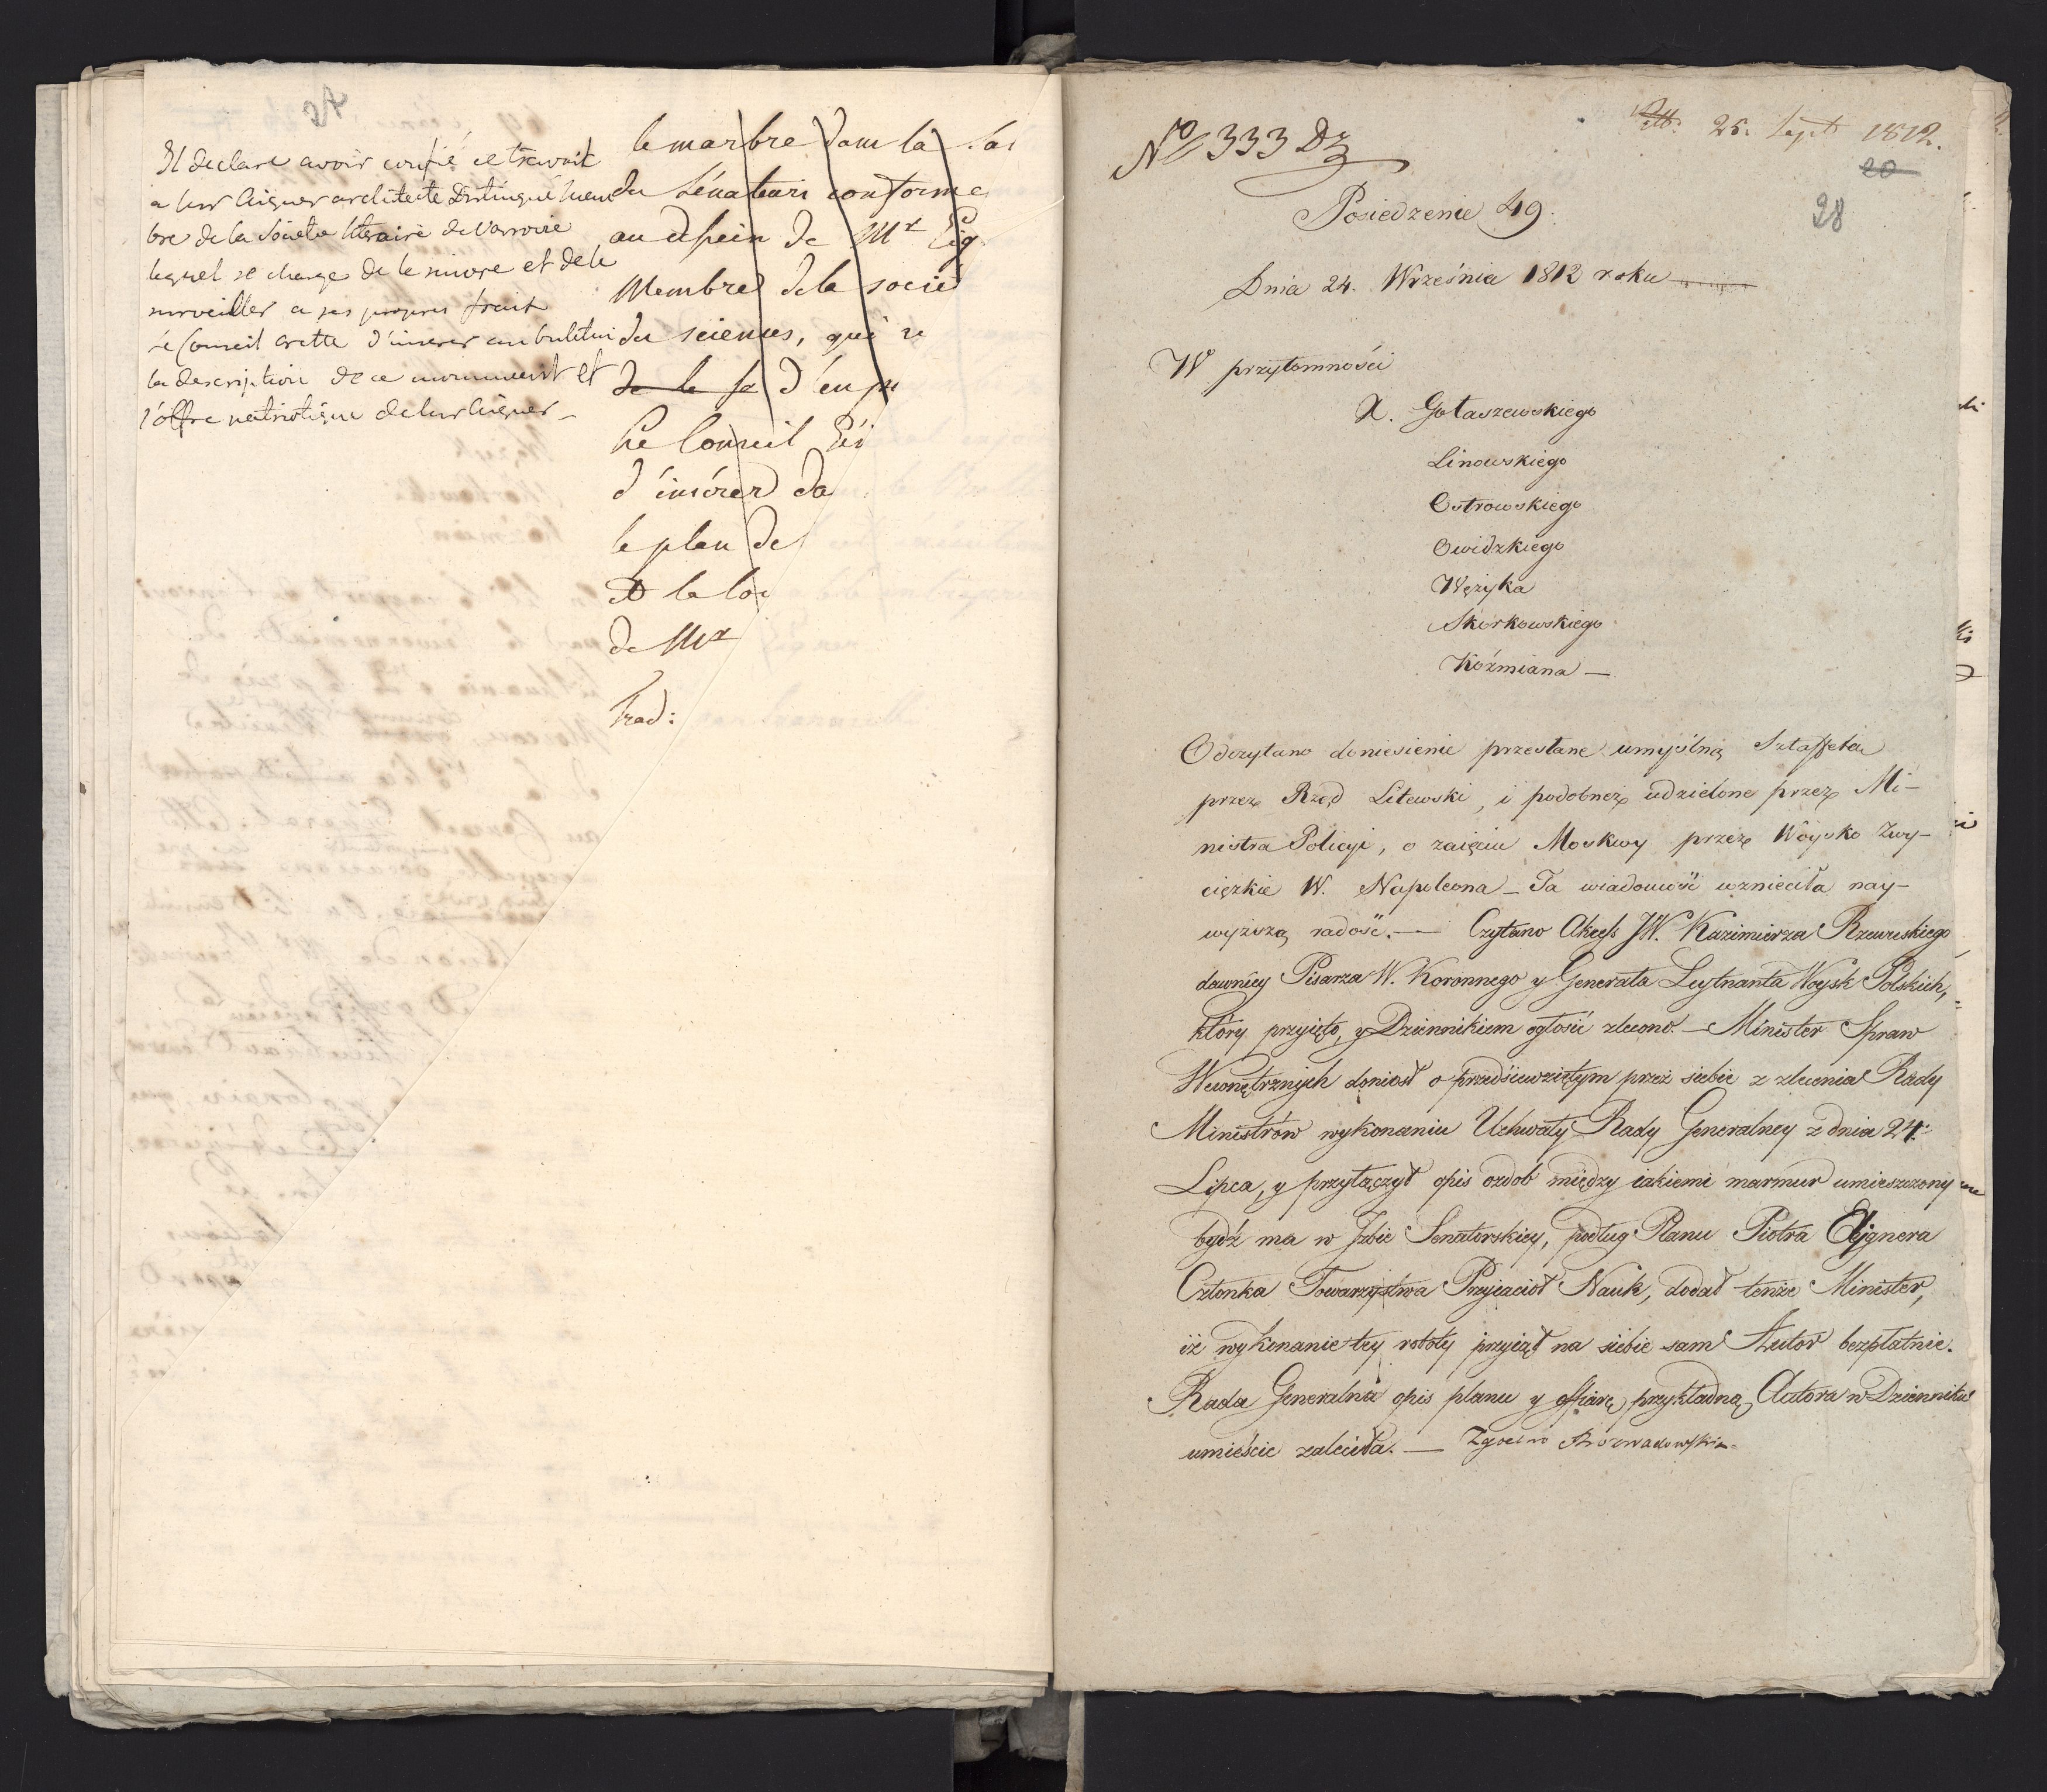 27
Il declare avoir confié ce travail
a leur Aigner architecte Distingué Mem
bre de la Societe literaire de Varsovie
lequel se charge de le suivre et de le
surveiller a ses propres frais
Le Conseil arette d'inserer au buletin
la description de ce monument et
l'offre patriotique de leur Aigner —
le marbre dans la Sal
des Sénateurs conforme
au dessein de Mr Aig
Membre de la socié
des sciences, qui se
de le fa d'en pr
Le Conseil
d'insérer da
le plan de
et le lo
de Mr
Trad:
No 333 Dz
25. Sept 1812.
20
28
Posiedzenie 49.
Dnia 24. Września 1812 roku
W przytomności
X. Gołaszewskiego
Linowskiego
Ostrowskiego
Owidzkiego
Wężyka
Skorkowskiego
Koźmiana —
Odczytano doniesienie przesłane umyślną Sztaffetą
przez Rząd Litewski, i podobnież udzielone przez Mi-
nistra Policyi, o zaięciu Moskwy przez Woysko Zwy-
cięzkie W. Napoleona — Ta wiadomość wznieciła nay-
wyższą radość. — Czytano Akcess JW. Kazimierza Rzewuskiego
dawniey Pisarza W. Koronnego y Generała Leytnanta Woysk Polskich,
który przyięto, y Dziennikiem ogłosić zlecono. — Minister Spraw
Wewnętrznych doniosł o przedsięwziętym przez siebie z zlecenia Rady
Ministrów wykonaniu Uchwały Rady Generalney z dnia 24.
Lipca, y przyłączył opis ozdob między iakiemi marmur umieszczony
bydź ma w Izbie Senatorskiey, podług Planu Piotra Ejgnera
Członka Towarzystwa Przyiacioł Nauk, dodał tenże Minister,
iż wykonanie tey roboty przyiął na siebie sam Autor bezpłatnie.
Rada Generalna opis planu y offiarę przykładną Autora w Dzienniku
umieścic zaleciła. — Zgodno Rozwadowski